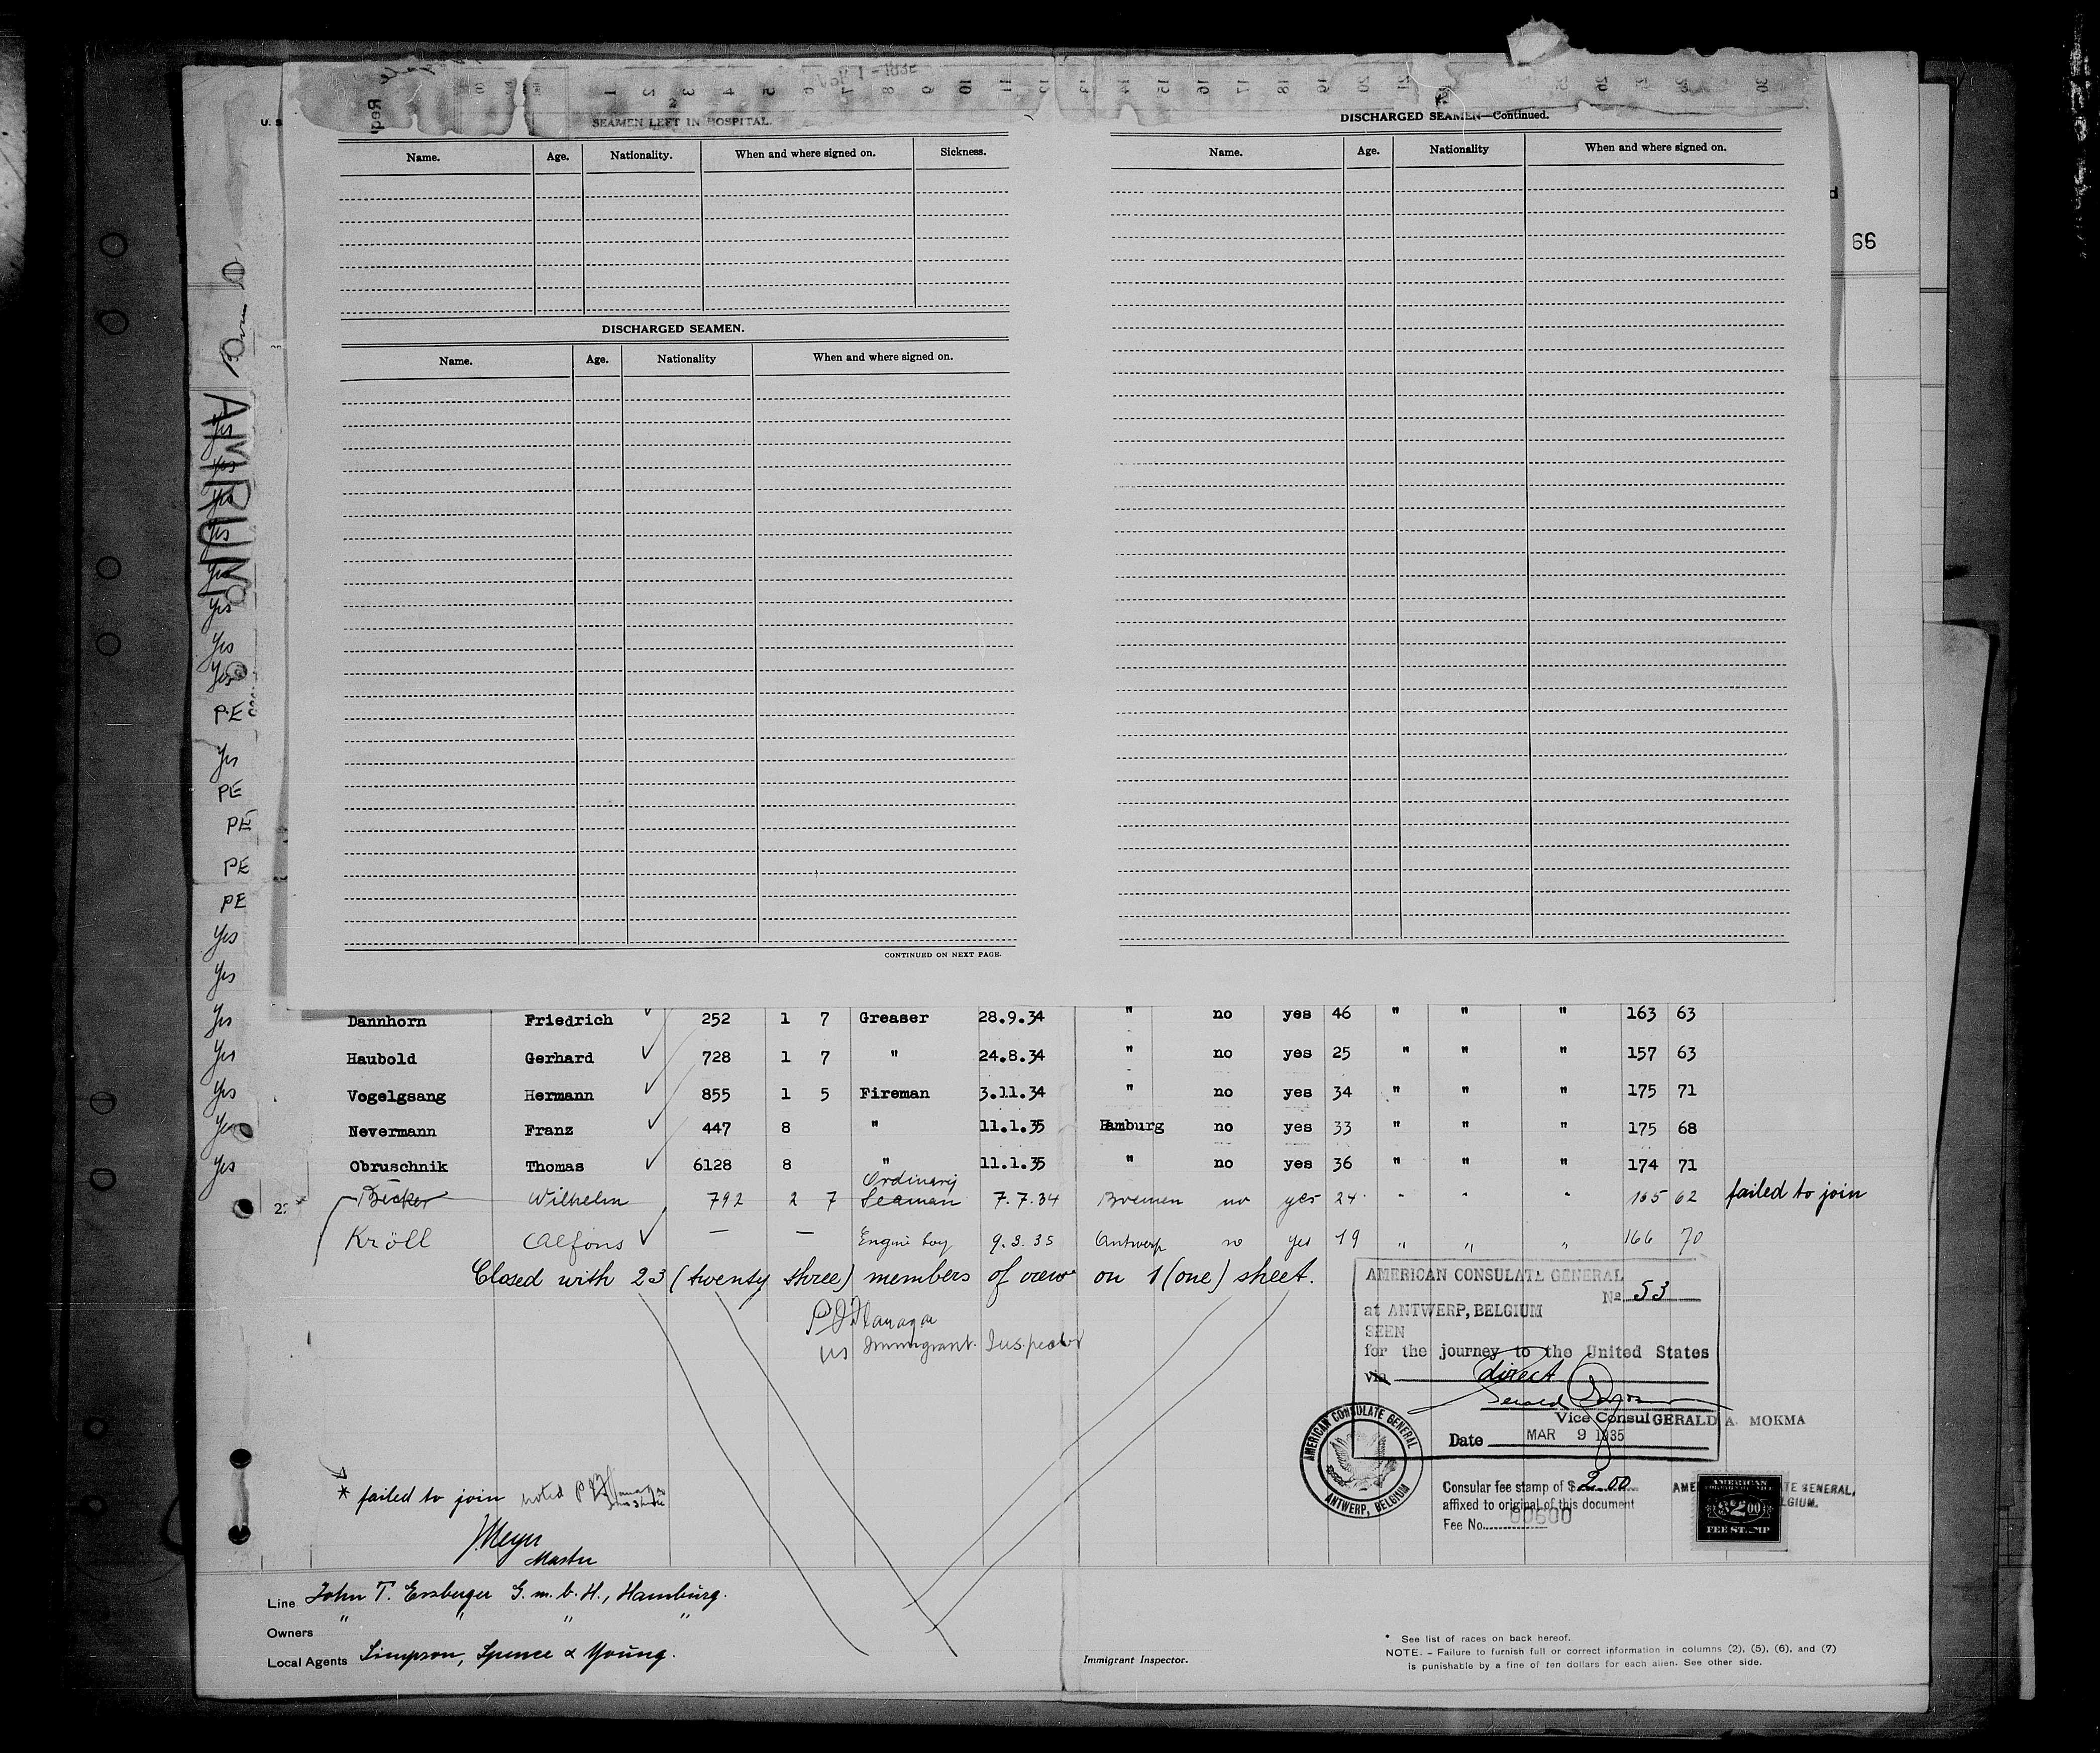 SEAMEN LEFT IN HOSPITAL.
Name. Age. Nationality. When and where signed on. Sickness.
DISCHARGED SEAMEN.
Name. Age. Nationality When and where signed on.
CONTINUED ON NEXT PAGE.
DISCHARGED SEAMEN—Continued.
Name. Age. Nationality When and where signed on.
66
AMRUM
Yes
Yes
Yes
Yes
Yes
Yes
Yes
Yes
PE
Yes
PE
PE
PE
PE
Yes
Yes
Yes Dannhorn Friedrich ✓ 252 1 7 Greaser 28.9.34 " no yes 46 " " " 163 63
Yes Haubold Gerhard ✓ 728 1 7 " 24.8.34 " no yes 25 " " " 157 63
Yes Vogelgsang Hermann ✓ 855 1 5 Fireman 3.11.34 " no yes 34 " " " 175 71
Yes Nevermann Franz ✓ 447 8 " 11.1.35 Hamburg no yes 33 " " " 175 68
Yes Obruschnik Thomas ✓ 6128 8 " 11.1.35 " no yes 36 " " " 174 71
Becker Wilhelm 792 2 7 Ordinary Seaman 7.7.34 Bremen no yes 24 " " " 165 62 failed to join
Kröll Alfons ✓ — — Engine boy 9.3.35 Antwerp no yes 19 " " " 166 70
Closed with 23 (twenty three) members of crew on 1 (one) sheet.
P J Flanagan
US Immigrant Inspector
AMERICAN CONSULATE GENERAL
No 53
at ANTWERP, BELGIUM
SEEN
for the journey to the United States
via direct
Vice Consul GERALD A. MOKMA
Date MAR 9 1935
AMERICAN CONSULATE GENERAL
ANTWERP, BELGIUM
Consular fee stamp of $ 2.00
affixed to original of this document
Fee No.
AMERICAN
$2.00
FEE STAMP
TE GENERAL,
LGIUM.
* failed to join noted
J. Meyer
Master
Line John T. Essberger G.m.b.H., Hamburg.
Owners " " " "
Local Agents Simpson, Spence & Young.
Immigrant Inspector.
* See list of races on back hereof.
NOTE. – Failure to furnish full or correct information in columns (2), (5), (6), and (7)
is punishable by a fine of ten dollars for each alien. See other side.